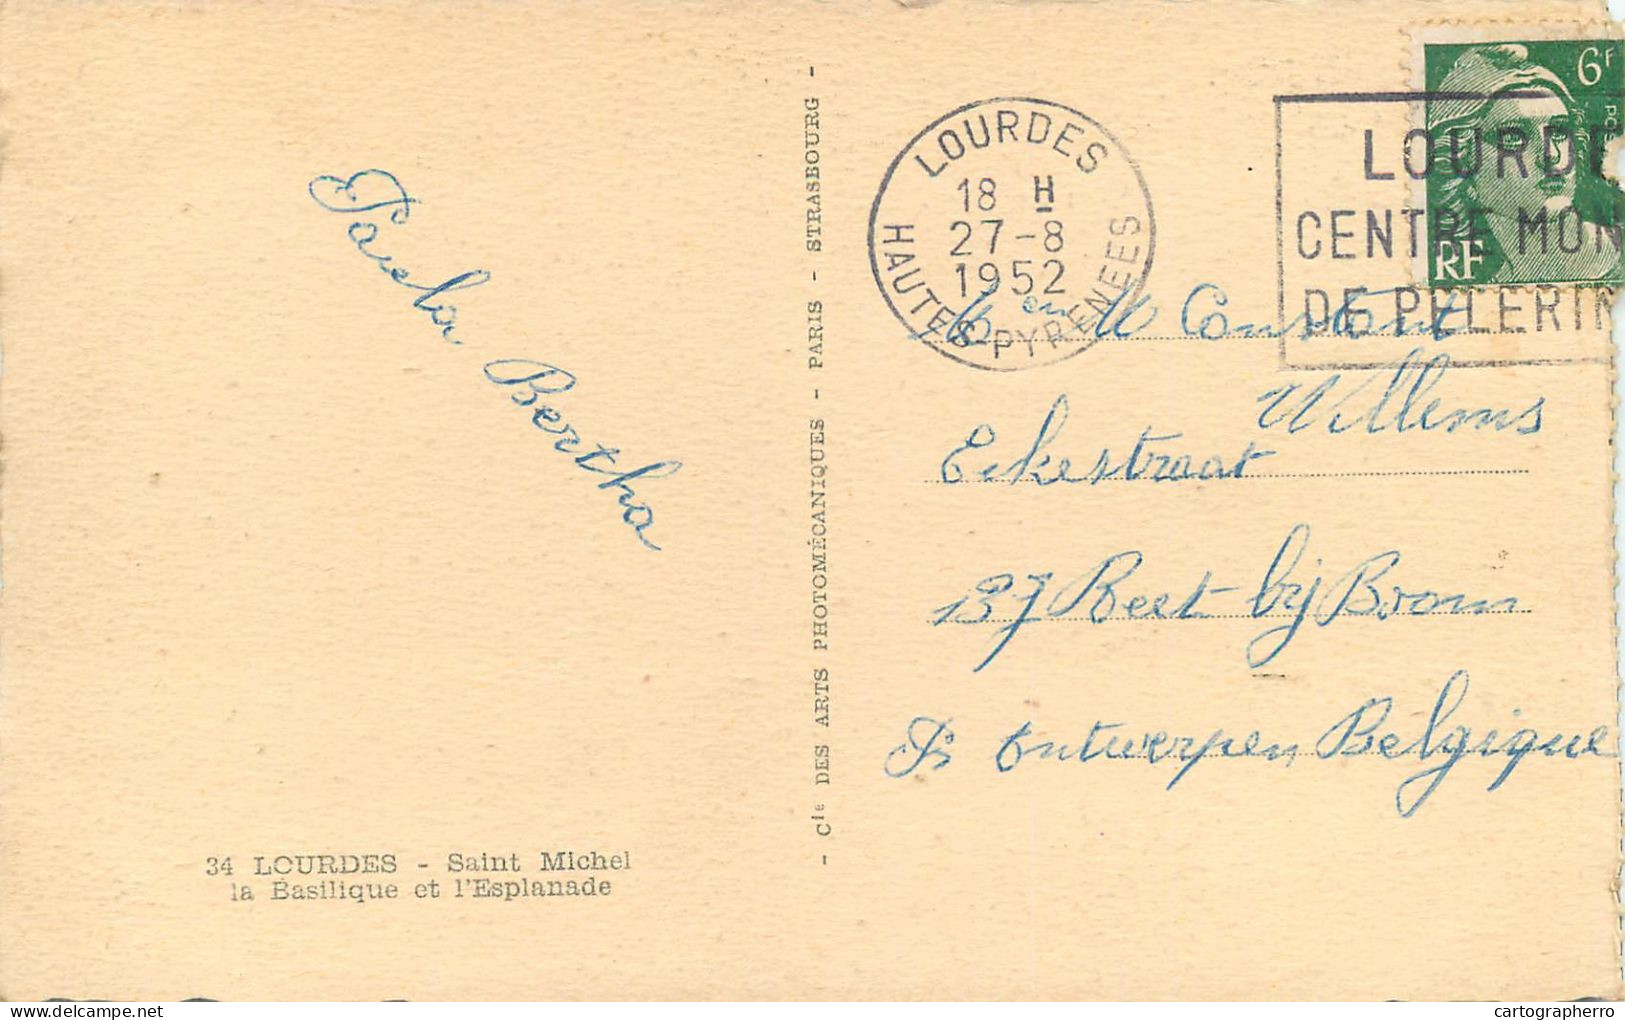 Parela Bertha
34 LOURDES - Saint Michel
la Basilique et l'Esplanade
- Cie DES ARTS PHOTOMÉCANIQUES - PARIS - STRASBOURG -
LOURDES
18 H
27-8
1952
HAUTES-PYRENEES
6F
POS
RF
LOURDE
CENTRE MON
DE PELERIN
Constant
Willems
Eikestraat
137 Reet bij Boom
Pr Antwerpen Belgique
cartographerro